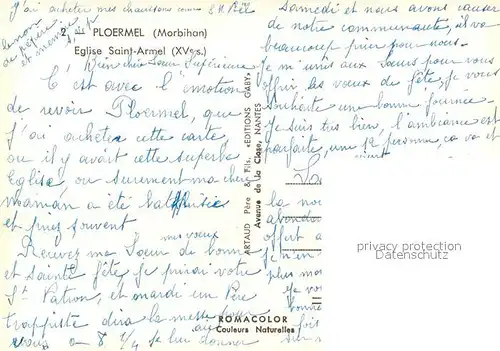 J'ai acheter mes chaussons comme
2. PLOERMEL (Morbihan)
Eglise Saint-Armel (XVe s.)
Bien chère Sœur Supérieure
C'est avec l'émotion
de revoir Ploermel, que
j'ai acheter cette carte,
ou il y avait cette superbe
Eglise, ou surement ma chère
maman a été
et priez souvent
mes vœux
Recevez ma Sœur de bonne
et sainte fête, je priai votre
St Patron, et mardi un Père
trappiste dira la messe pour
vous a 8 1/4 je lui donner
ARTAUD Père & Fils, «EDITIONS GABY»
Avenue de la Close, NANTES
ROMACOLOR
Couleurs Naturelles
Samedi et nous avons causer
de notre communauté, il va
beaucoup prier pour nous.
Je m'unis aux Sœurs pour vous
offrir les vœux de fête, je vous
souhaite une bonne journée.
Je suis très bien, l'ambiance est
parfaite, une 12 personne, ca va et
la
offert
je n'en
plus
je
bonne
fois
sur
privacy protection
Datenschutz